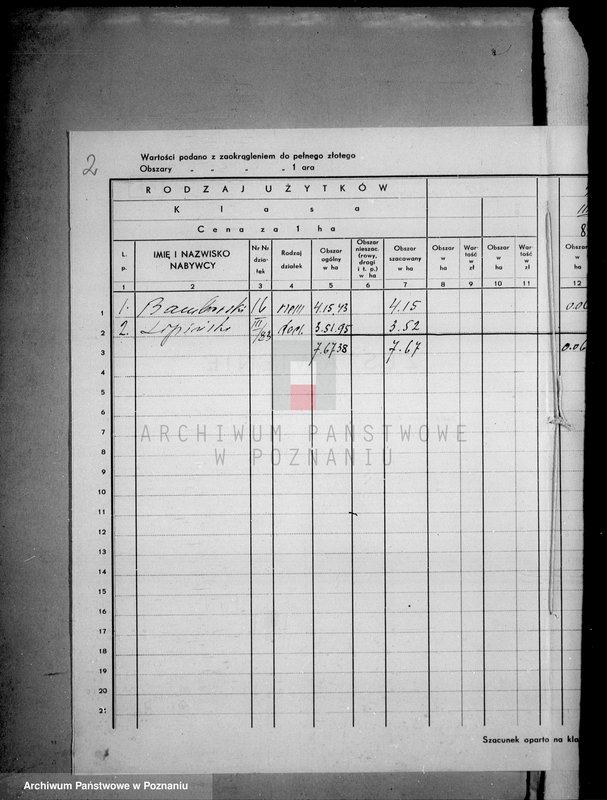 2
Wartości podano z zaokrągleniem do pełnego złotego
Obszary „ „ „ „ 1 ara
RODZAJ UŻYTKÓW
Klasa
Cena za 1 ha
8
L. p.
IMIĘ I NAZWISKO NABYWCY
Nr Nr dzia- łek
Rodzaj działek
Obszar ogólny w ha
Obszar nieszac. (rowy, drogi i t. p.) w ha
Obszar szacowany w ha
Obszar w ha
War- tość w zł
Obszar w ha
War- tość w zł
Obszar w ha
1 2 3 4 5 6 7 8 9 10 11 12
1 1. 16 4.15,43 4.15 0.06
2 2. Lipiński III/83 3.51.95 3.52
3 7.6738 7.67 0.06
4
5
6
7
8
9
10
11
12
13
14
15
16
17
18
19
20
21
ARCHIWUM PAŃSTWOWE
W POZNANIU
Szacunek oparto na kla
Archiwum Państwowe w Poznaniu